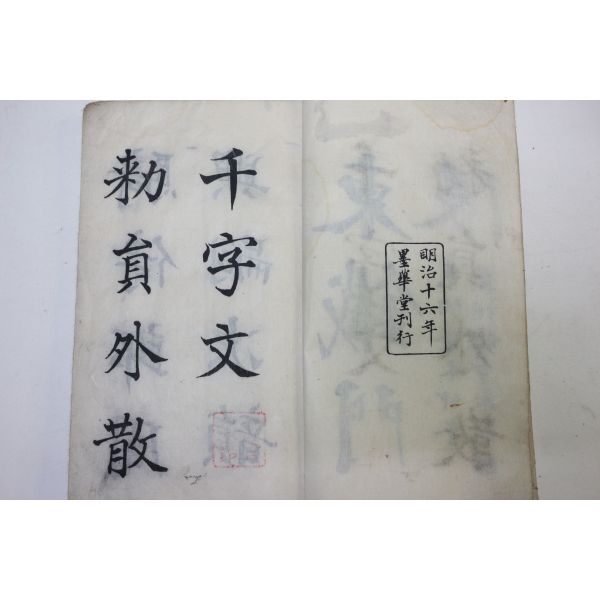 明治十六年
墨華堂刊行
千字文
勅員外散